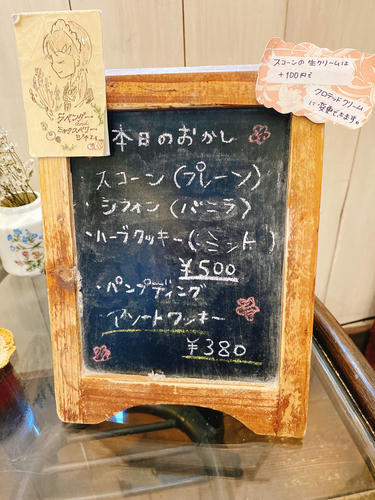 ラベンダー
and
ミックスベリー
スコーンの生クリームは
+100円で
クロテッドクリーム
に変更できます。
本日のおかし
スコーン(プレーン)
・シフォン(バニラ)
・ハーブクッキー(ミント)
¥500
・パンプディング
アソートクッキー
¥380